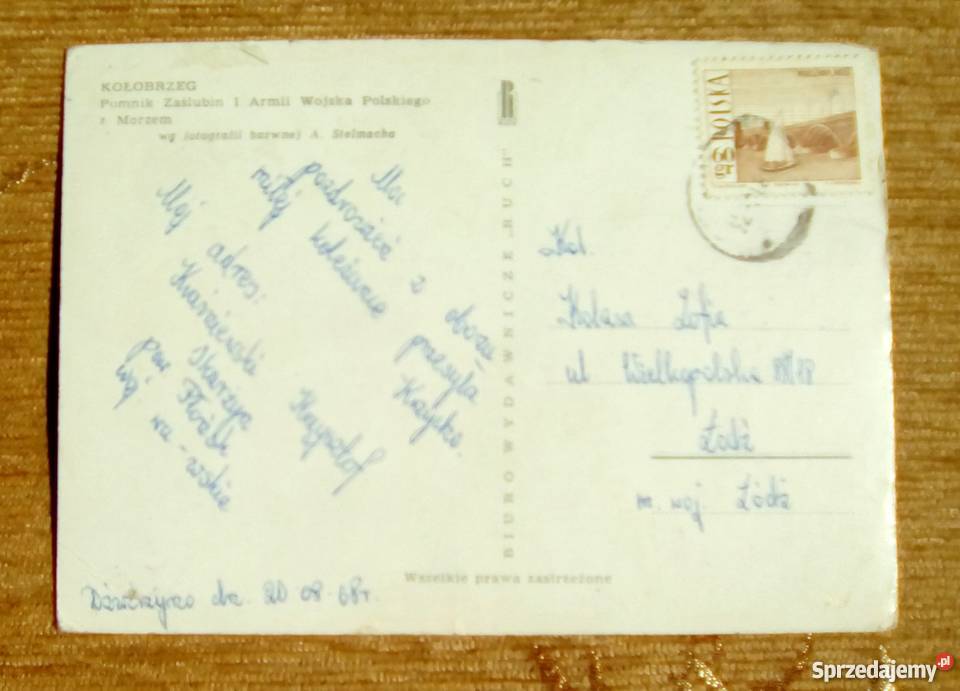 KOŁOBRZEG
Pomnik Zaślubin I Armii Wojska Polskiego
z Morzem
wg fotografii barwnej A. Stelmacha
Ma
pozdrowień z obozu
miłej koleżance przesyła
Krzysztof
Mój adres:
Skarżysko
wskie
BIURO WYDAWNICZE „RUCH"
POLSKA
60 gr
Kol.
Zofia
ul Wielkopolska
Łódź
m. woj. Łódź
Wszelkie prawa zastrzeżone
dn. 20 08-68r.
Sprzedajemy.pl